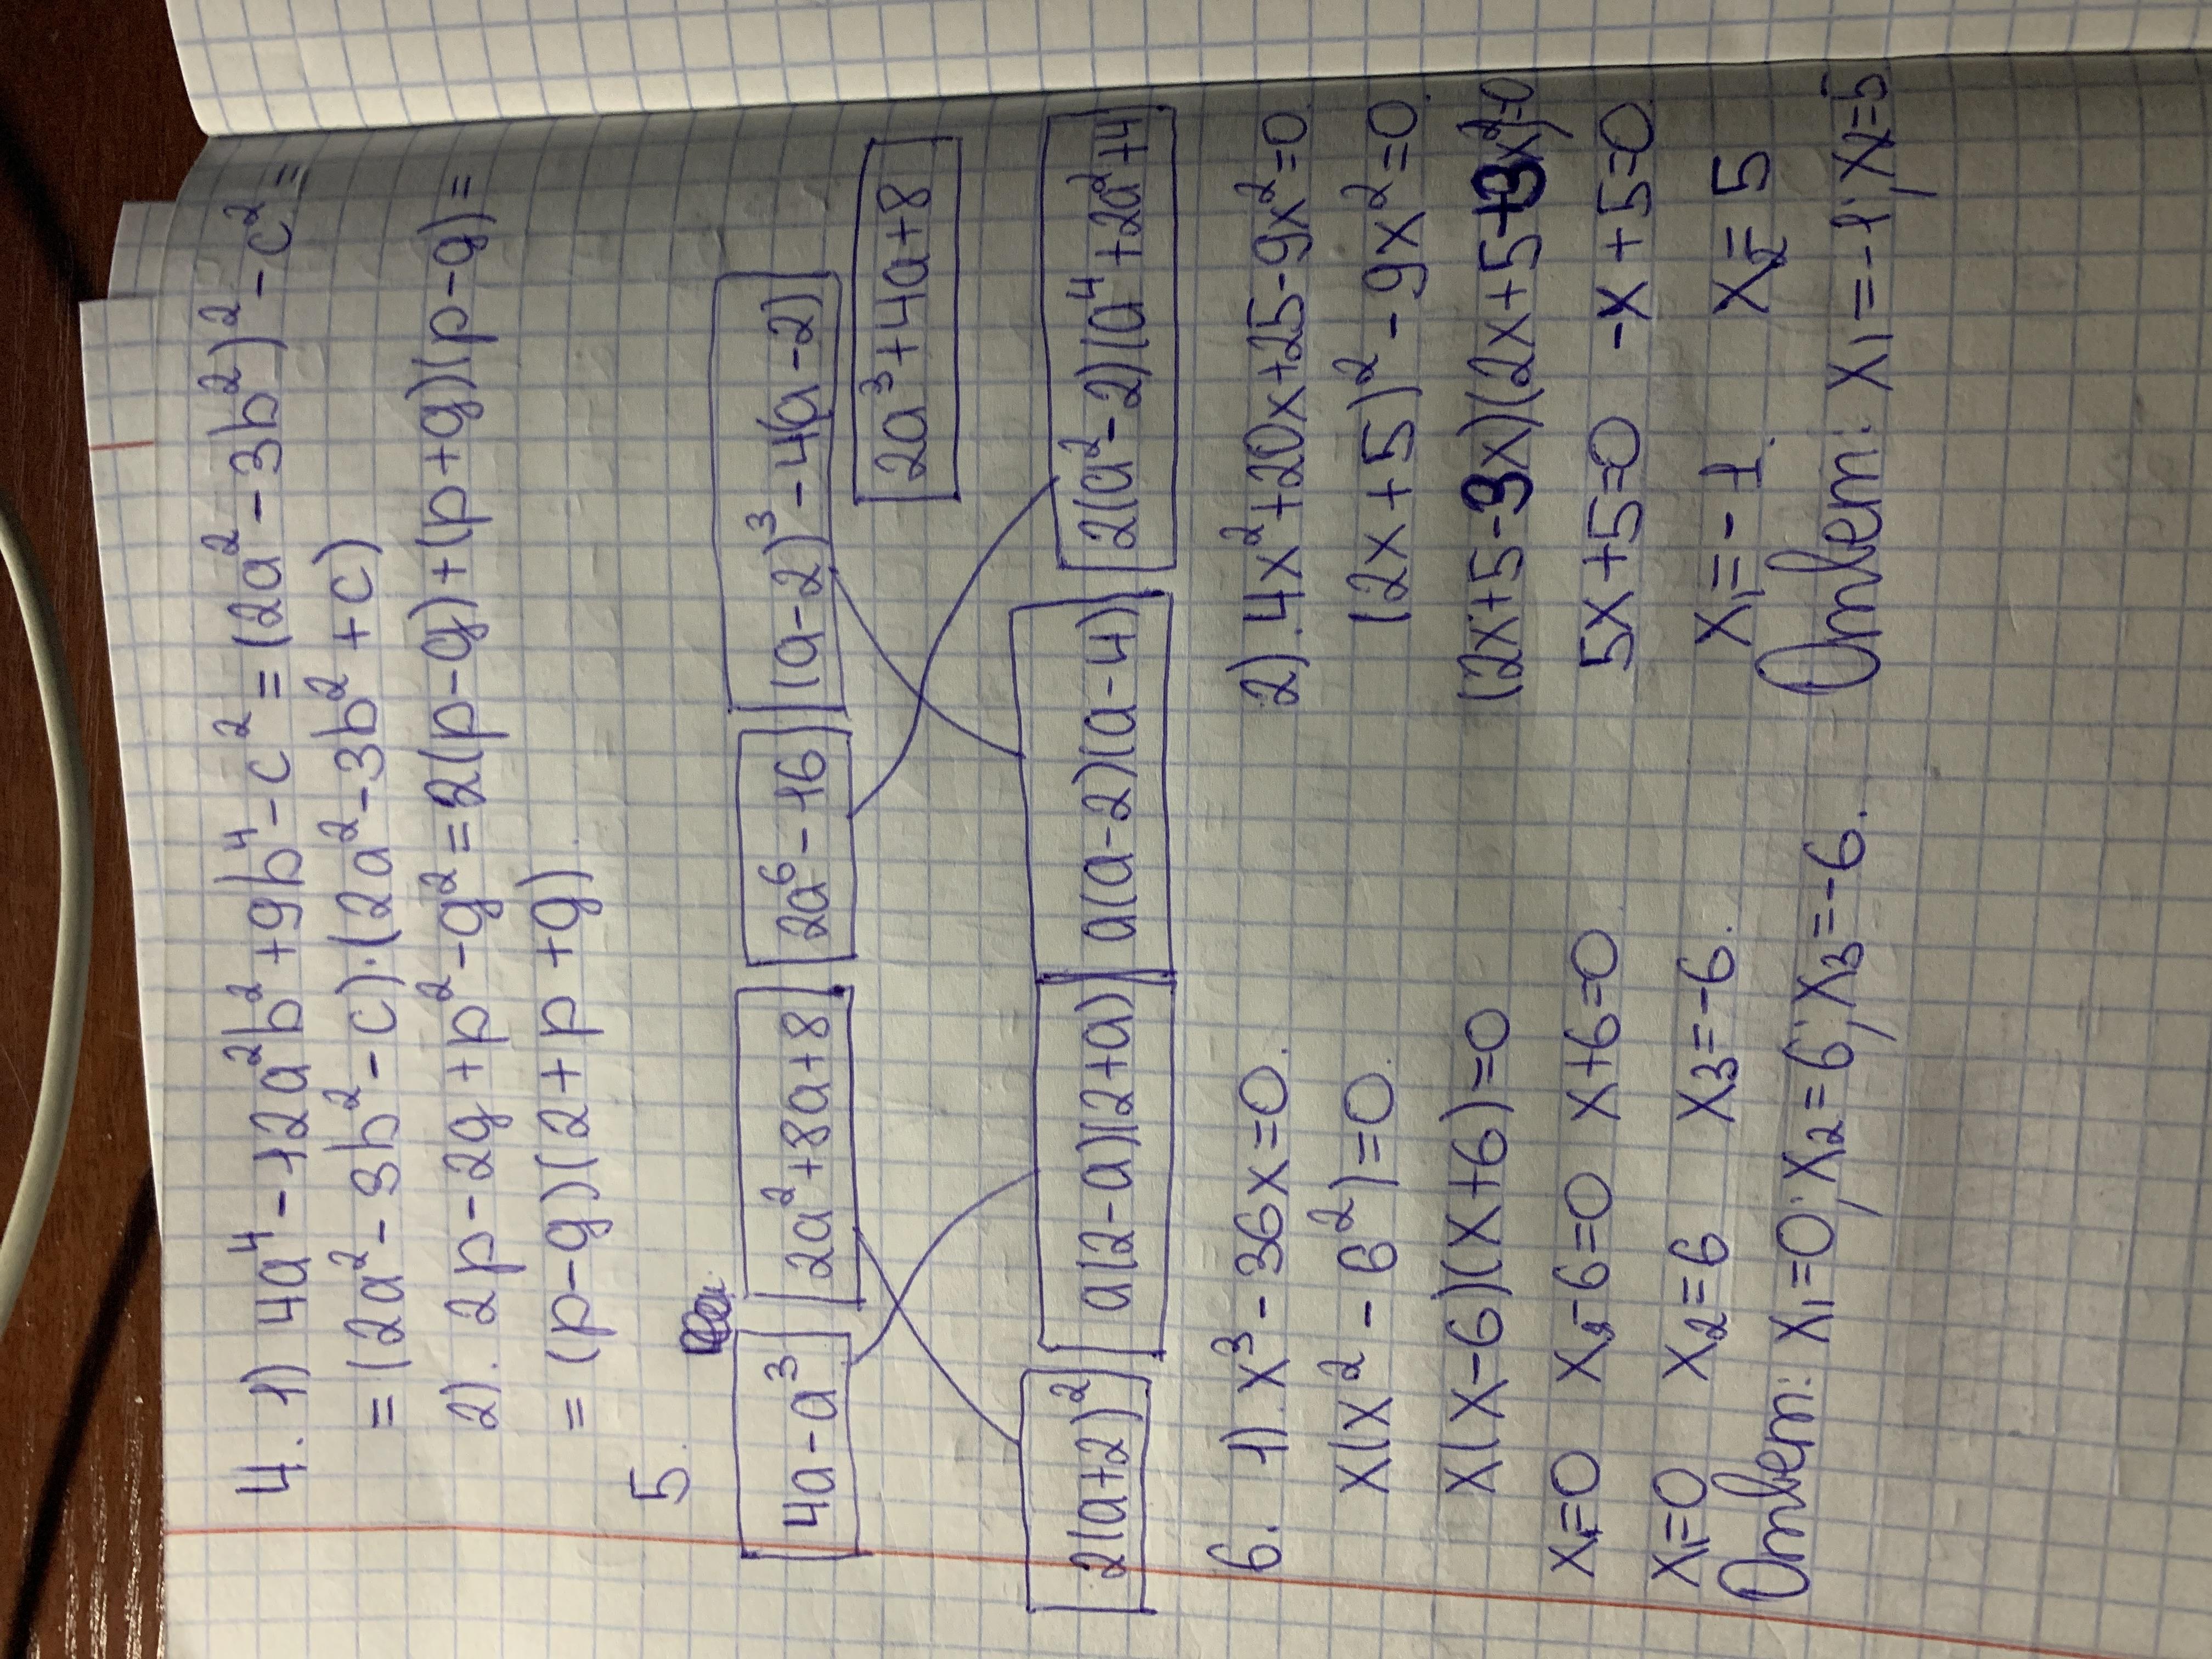 4. 1) 4a⁴-12a²b²+9b⁴-c²=(2a²-3b²)²-c²=
=(2a²-3b²-c)·(2a²-3b²+c)
2). 2p-2g+p²-g²=2(p-g)+(p+g)(p-g)=
=(p-g)(2+p+g).
5.
4a-a³ 2a²+8a+8 2a⁶-16 (a-2)³-4(a-2)
2a³+4a+8
2(a+2)² a(2-a)(2+a) a(a-2)(a-4) 2(a²-2)(a⁴+2a²+4)
6. 1). x³-36x=0.
x(x²-6²)=0.
x(x-6)(x+6)=0
x₁=0 x₂-6=0 x+6=0
x₁=0 x₂=6 x₃=-6.
Ответ: x₁=0; x₂=6; x₃=-6.
2). 4x²+20x+25-9x²=0.
(2x+5)²-9x²=0.
(2x+5-3x)(2x+5+3x)=0
5x+5=0 -x+5=0.
x₁=-1. x₂=5
Ответ: x₁=-1; x₂=5